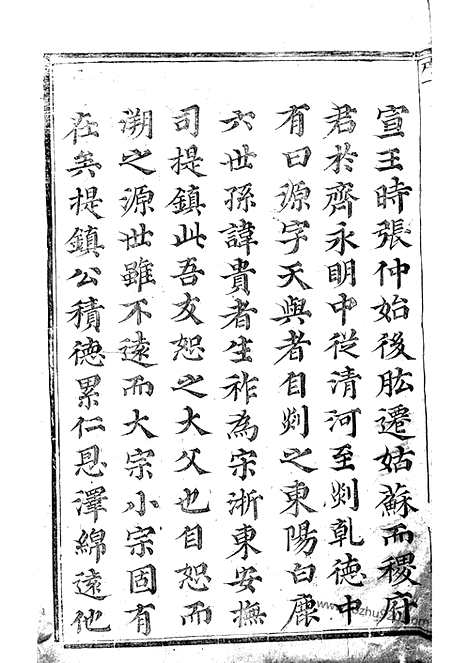 宣王時張仲始後肱遷姑蘇而稷府
君於齊永明中從清河至剡乾德中
有曰源字天與者自剡之東陽白鹿
六世孫諱貴者生祚為宗浙東安撫
司提鎮此吾友恕之大父也自恕而
溯之源世雖不遠而大宗小宗固有
在矣提鎮公積德累仁恩澤綿遠他